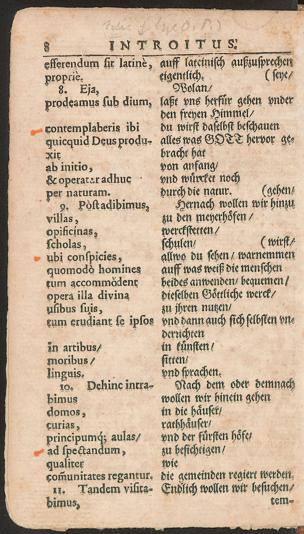 8 INTROITUS.
efferendum sit latinè, auff lateinisch außzusprechen
propriè. eigentlich. (seye/
8. Eja, Wolan/
prodeamus sub dium, laßt vns herfür gehen vnder
den freyen Himmel/
contemplaberis ibi du wirst daselbst beschauen
quicquid Deus produ- alles was GOTT hervor ge-
xit bracht hat
ab initio, von anfang/
& operatur adhuc vnd würcket noch
per naturam. durch die natur. (gehen/
9. Pòst adibimus, Hernach wollen wir hinzu
villas, zu den meyerhöfen/
opificinas, werckstetten/
scholas, schulen/ (wirst/
ubi conspicies, allwo du sehen/ warnemmen
quomodò homines auff was weiß die menschen
tum accommodent beides anwenden/ bequemen/
opera illa divina dieselben Göttliche werck/
usibus suis, zu ihren nutzen/
tum erudiant se ipsos vnd dann auch sich selbsten vn-
derrichten
in artibus/ in künsten/
moribus/ sitten/
linguis. vnd sprachen.
10. Dehinc intra- Nach dem oder demnach
bimus wollen wir hinein gehen
domos, in die häuser/
curias, rathhäuser/
principumq; aulas/ vnd der fürsten höfe/
ad spectandum, zu besichtigen/
qualiter wie
com̃unitates regantur. die gemeinden regiert werden.
11. Tandem visita- Endlich wollen wir besuchen/
bimus, tem-